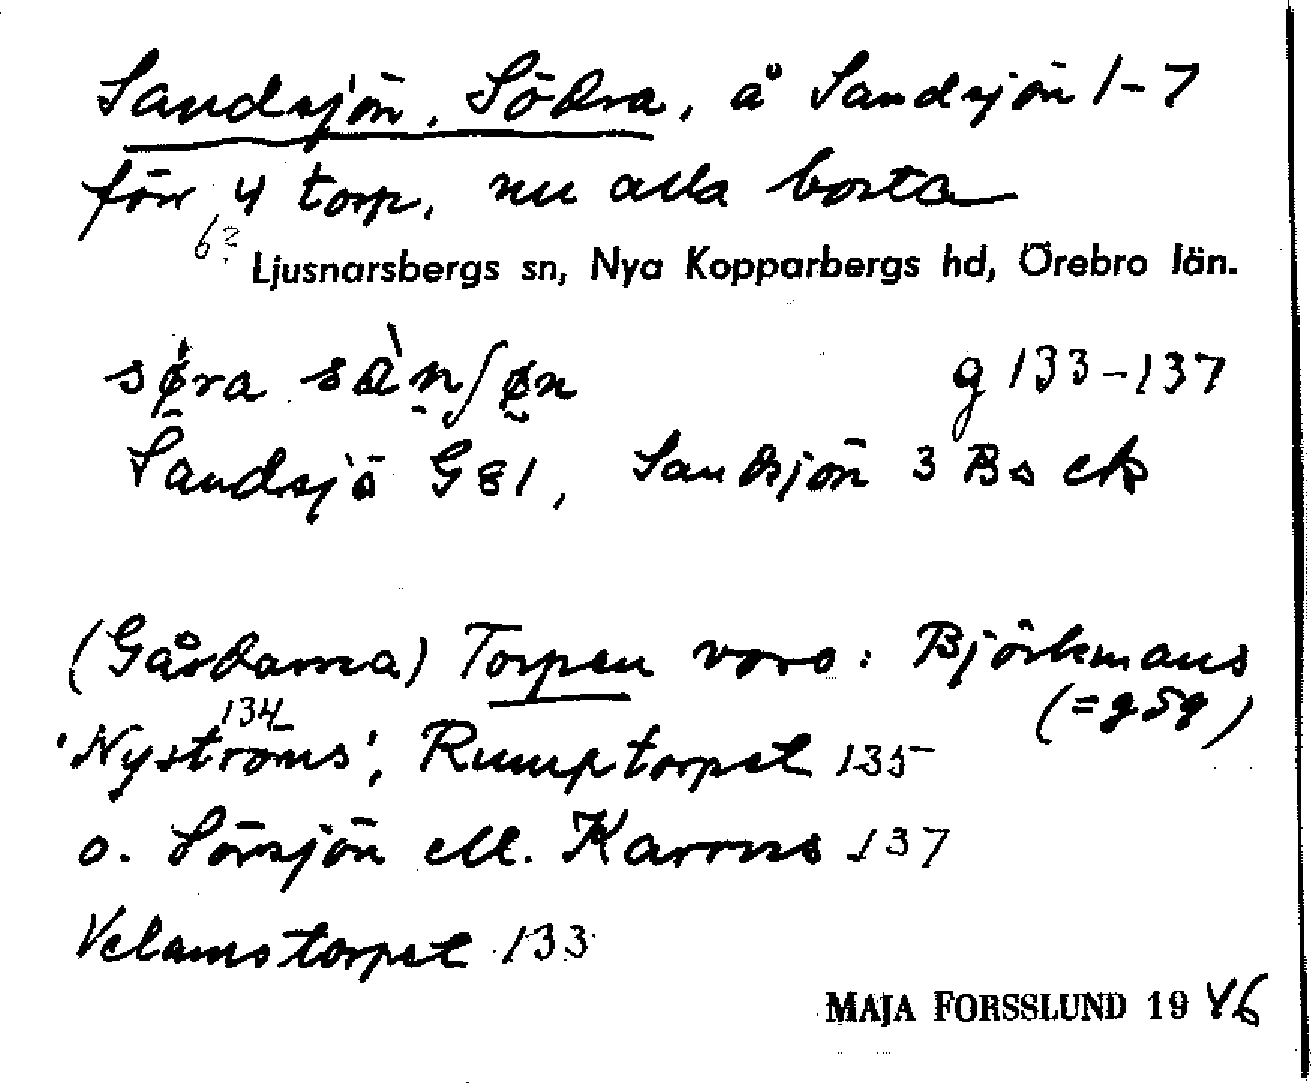 Sandsjön, Södra, å Sandsjön 1-7
förr 4 torp, nu alla borta
6?
Ljusnarsbergs sn, Nya Kopparbergs hd, Örebro län.
sø̀ra sànʃøn g 133-137
Sandsjö G81, Sandsjön 3 Bs ek
(Gårdarna) Torpen voro: Björkmans
(=g59)
134
'Nyströms', Rumptorpet 135
o. Sörsjön ell. Karrns 137
Velamstorpet 133
MAJA FORSSLUND 1946